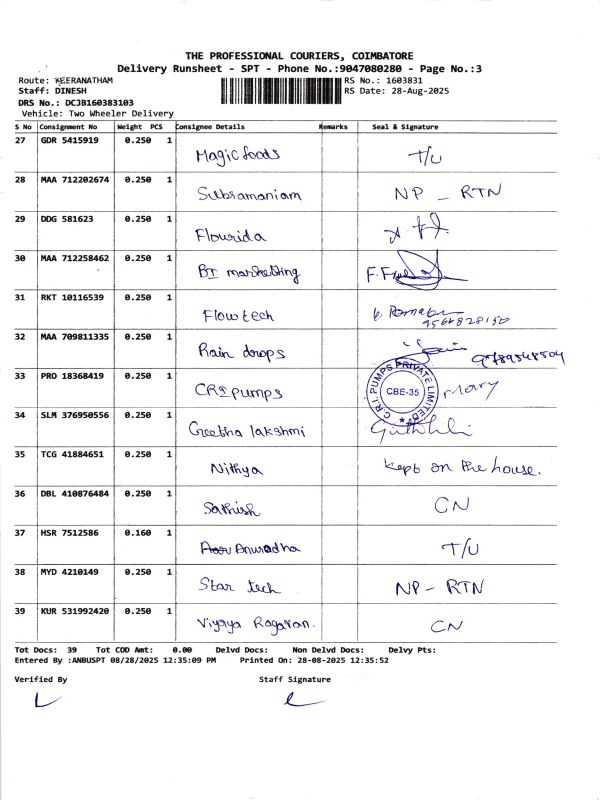 THE PROFESSIONAL COURIERS, COIMBATORE
Delivery Runsheet - SPT - Phone No.:9047080280 - Page No.:3
Route: KEERANATHAM RS No.: 1603831
Staff: DINESH RS Date: 28-Aug-2025
DRS No.: DCJB160383103
Vehicle: Two Wheeler Delivery
S No Consignment No Weight PCS Consignee Details Remarks Seal & Signature
27 GDR 5415919 0.250 1 Magic foods T/U
28 MAA 712202674 0.250 1 Subramaniam NP - RTN
29 DDG 581623 0.250 1 Flourida
30 MAA 712258462 0.250 1 BI marketing
31 RKT 10116539 0.250 1 Flowtech
32 MAA 709811335 0.250 1 Rain drops 9789548504
33 PRO 18368419 0.250 1 CRI pumps C.R.I. PUMPS PRIVATE LIMITED CBE-35 Mary
34 SLM 376950556 0.250 1 Geetha lakshmi
35 TCG 41884651 0.250 1 Nithya kept on the house.
36 DBL 410876484 0.250 1 Sathish CN
37 HSR 7512586 0.160 1 Anuradha T/U
38 MYD 4210149 0.250 1 Star tech NP - RTN
39 KUR 531992420 0.250 1 Vijaya Ragavan. CN
Tot Docs: 39 Tot COD Amt: 0.00 Delvd Docs: Non Delvd Docs: Delvy Pts:
Entered By :ANBUSPT 08/28/2025 12:35:09 PM Printed On: 28-08-2025 12:35:52
Verified By Staff Signature